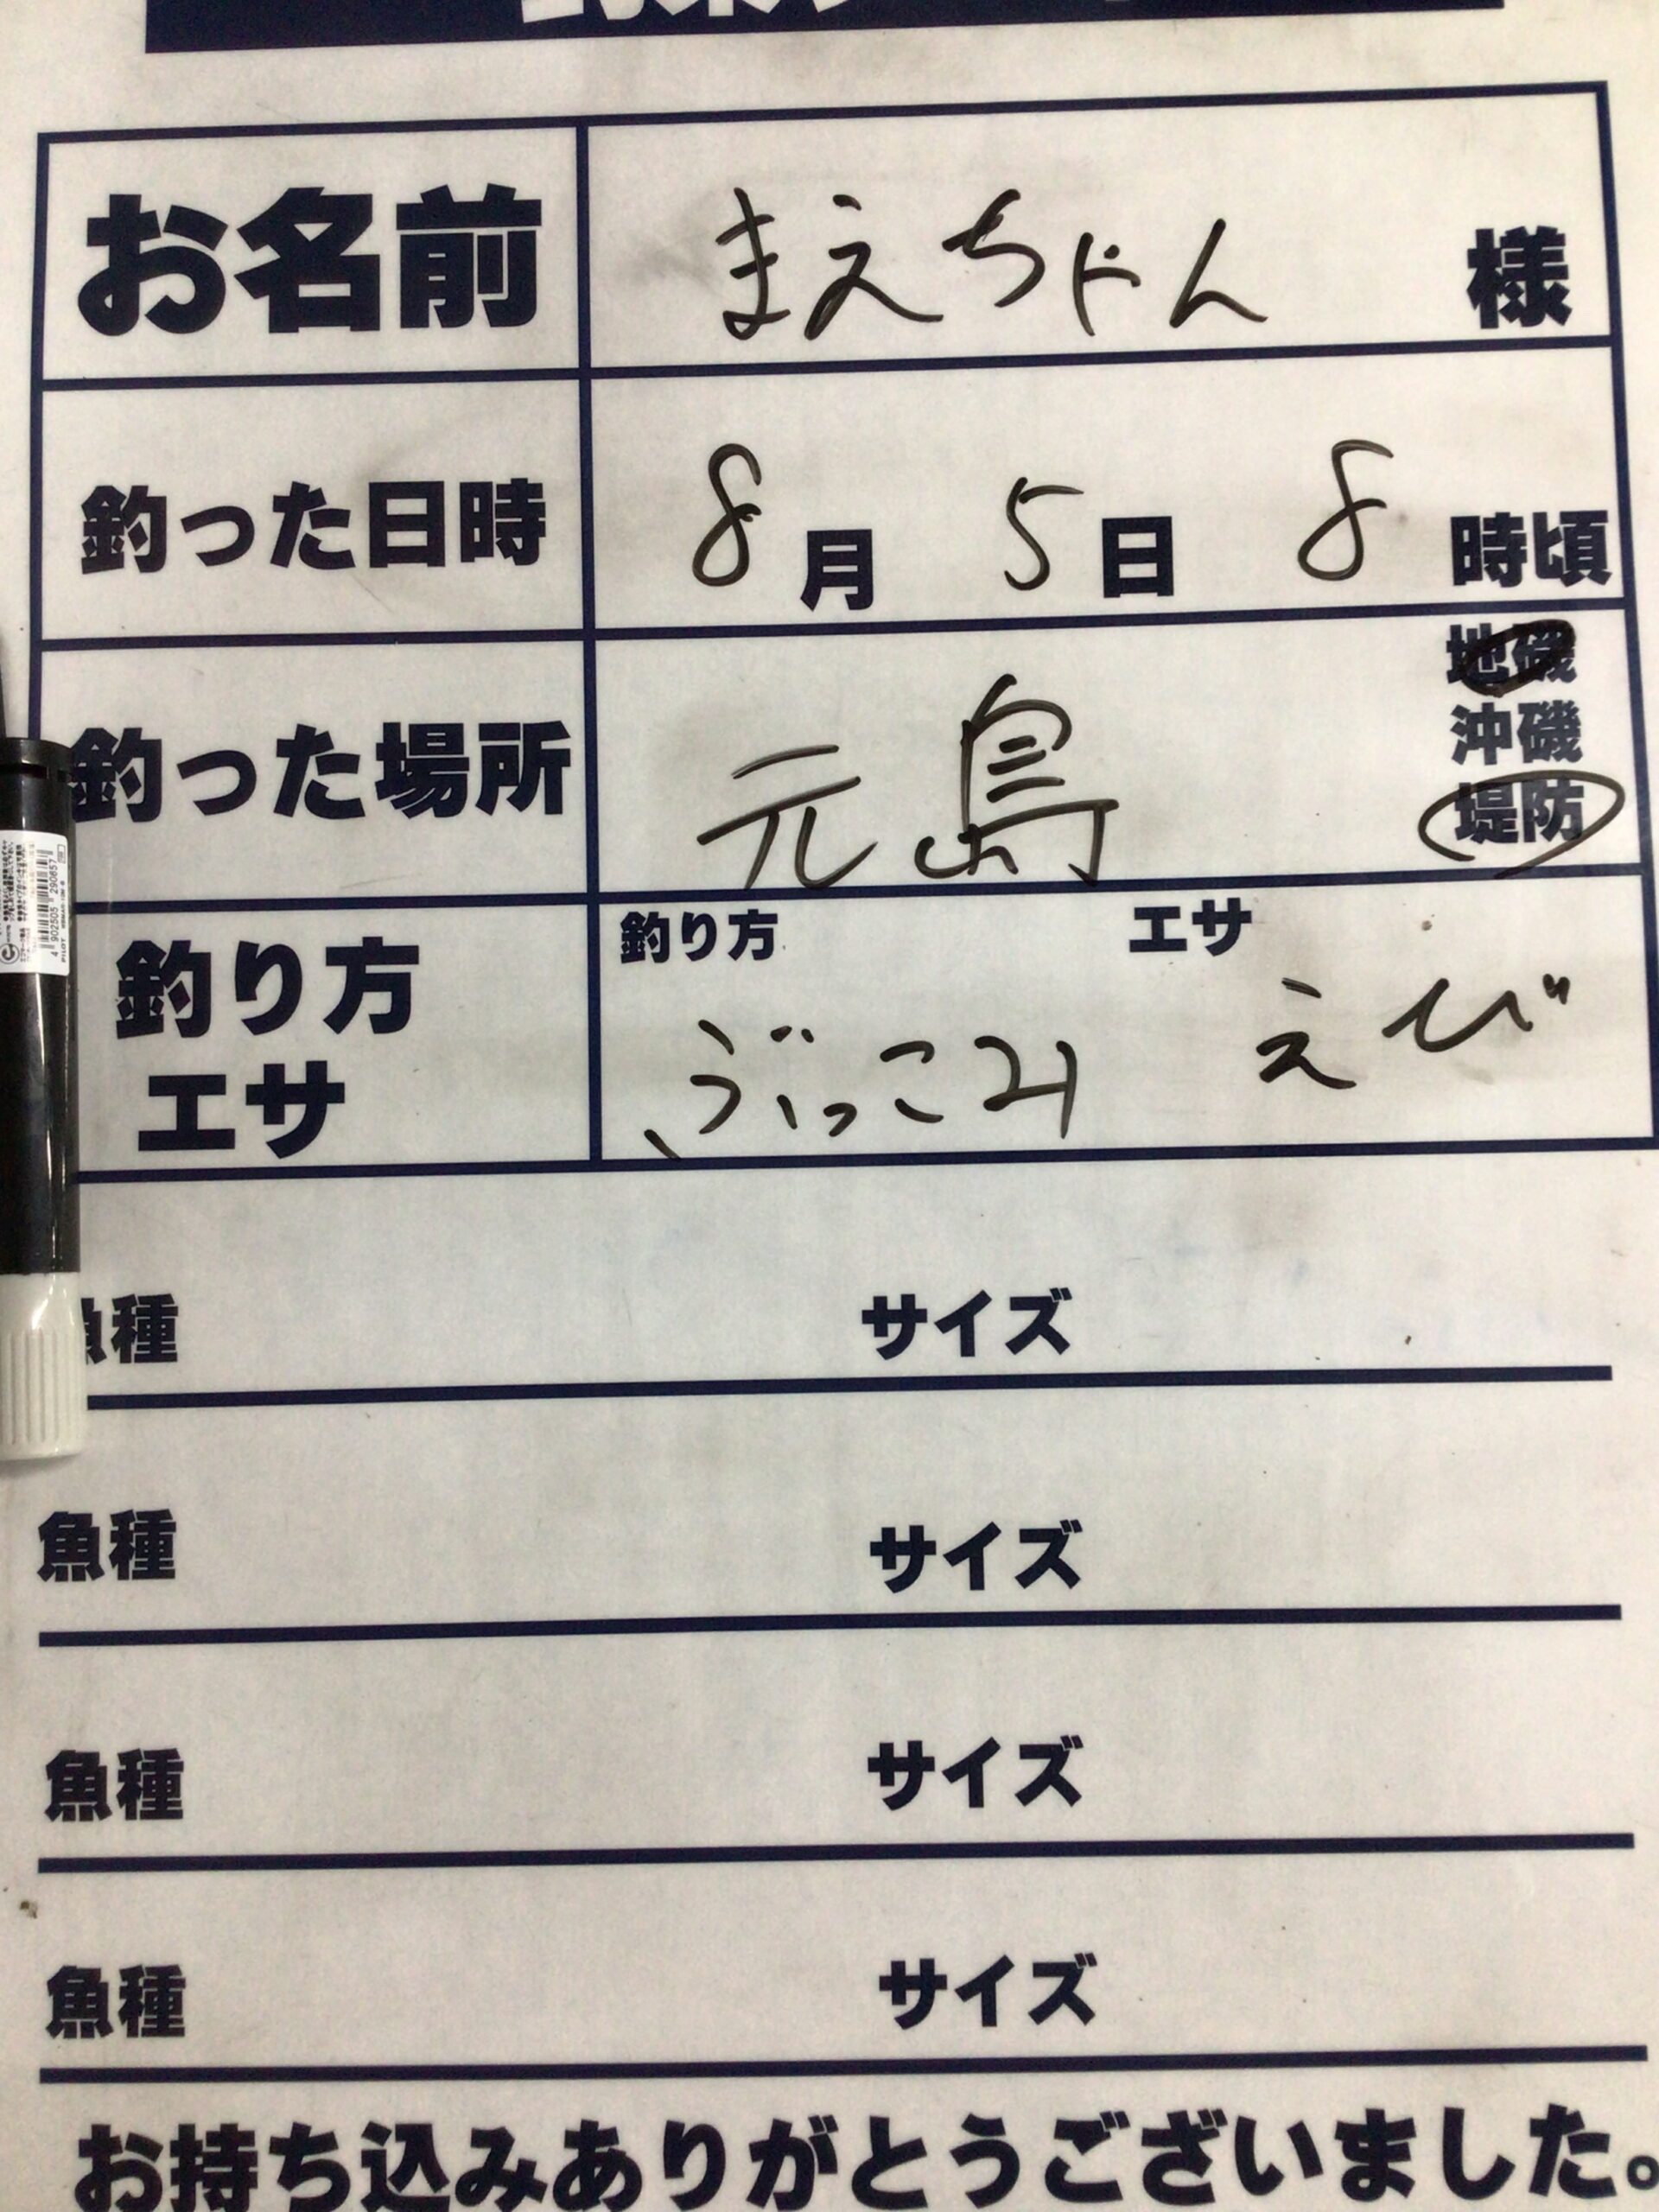 お名前 まえちゃん 様
釣った日時 8月 5日 8時頃
地磯
沖磯
釣った場所 元島 堤防
釣り方 エサ
釣り方 エサ ぶっこみ えび
魚種 サイズ
魚種 サイズ
魚種 サイズ
魚種 サイズ
お持ち込みありがとうございました。
4 902505 290657
PILOT